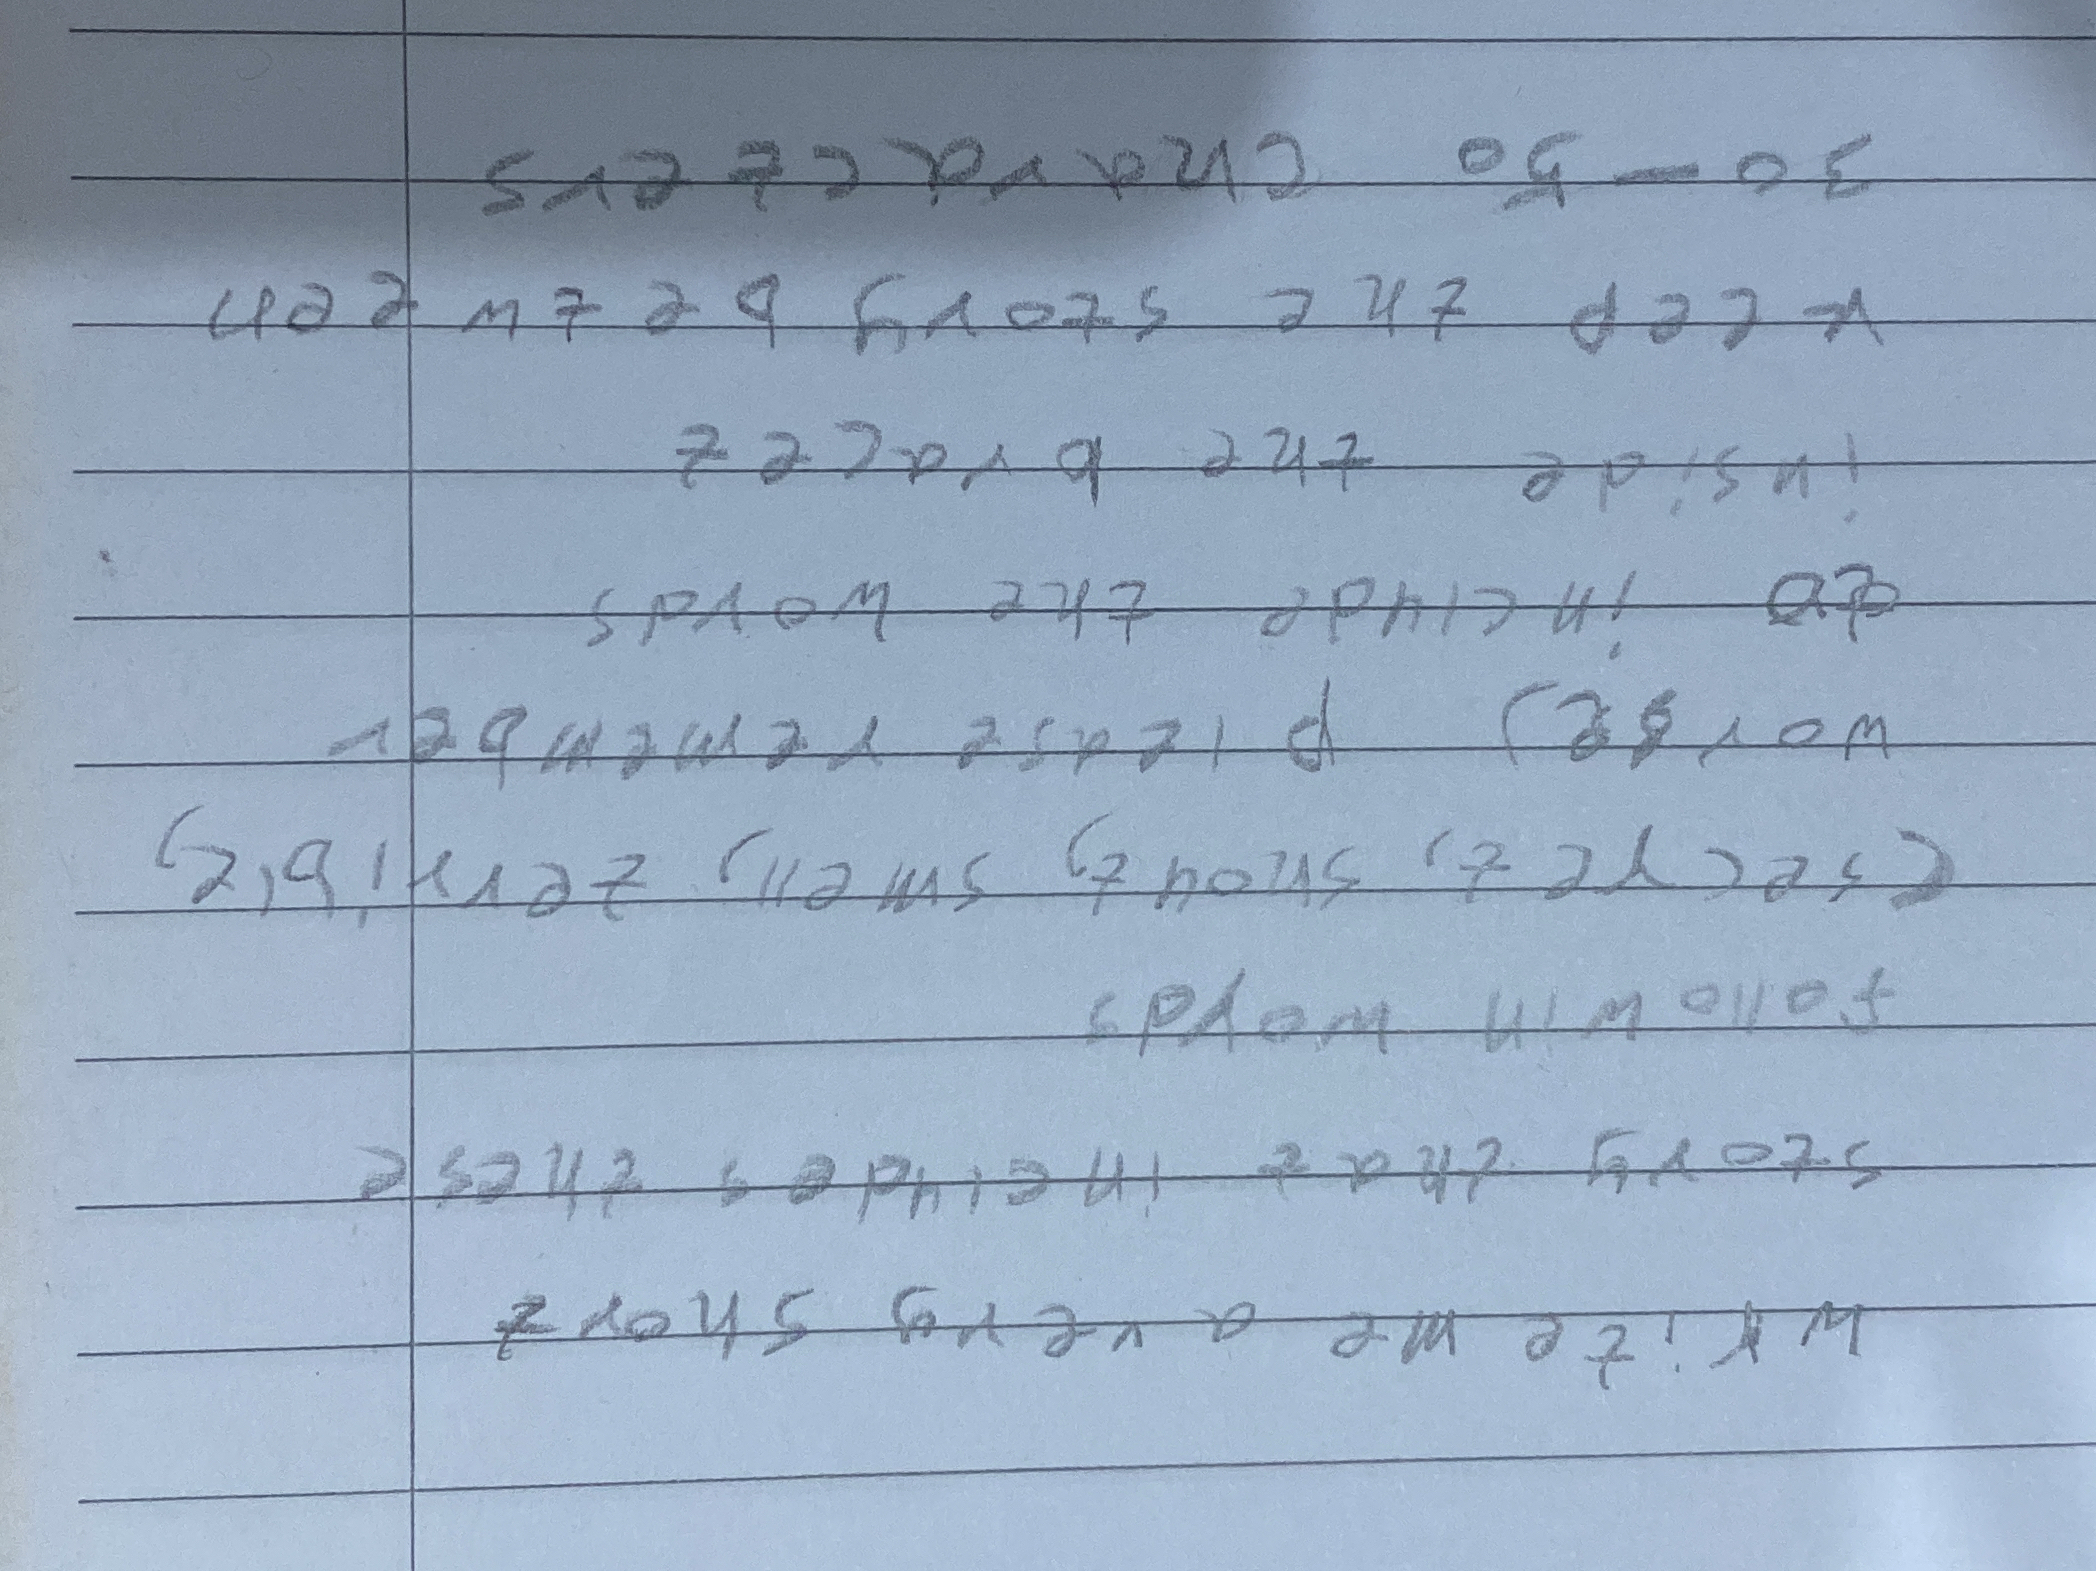 write me a very short
story that includes these
following words
(secret, shout, smell, terrible,
work), please remember
to include the words
inside the bracket
keep the story between
30 - 50 characters